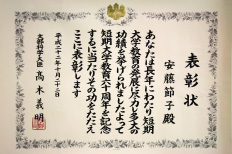 表彰状
安藤節子殿
あなたは長年にわたり短期
大学教育の発展に尽力し多大の
功績を挙げられましたよって
短期大学教育六十周年を記念
するに当たりその功をたたえ
ここに表彰します
平成二十二年十月二十二日
文部科学大臣 髙木義明